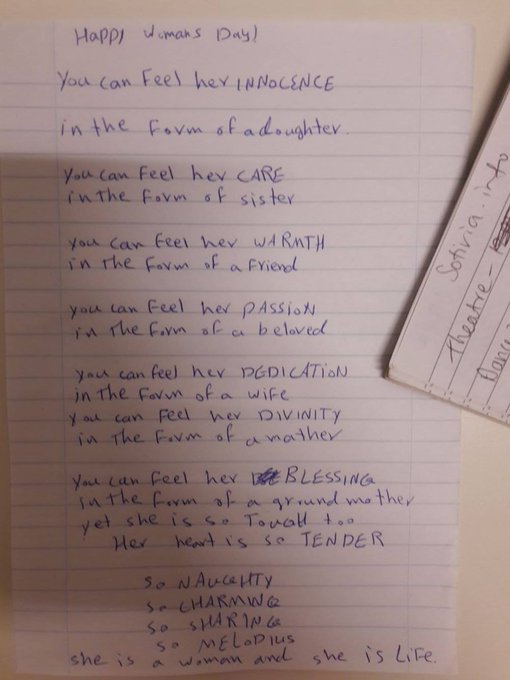 Happy womans Day!
You can Feel her INNOCENCE
in the Form of a doughter.
You can Feel her CARE
in the Form of sister
you can Feel her WARMTH
in the Form of a Friend
you can Feel her PASSION
in the Form of a beloved
you can feel her DEDICATION
in the Form of a wife
you can Feel her DIVINITY
in the Form of a mather
You can Feel her BLESSING
in the Form of a ground mother
yet she is so Tough too
Her heart is so TENDER
so NAUGHTY
so CHARMING
so SHARING
so MELODIUS
she is a woman and she is LiFe.
Sotiria.info
Theatre-
Dance